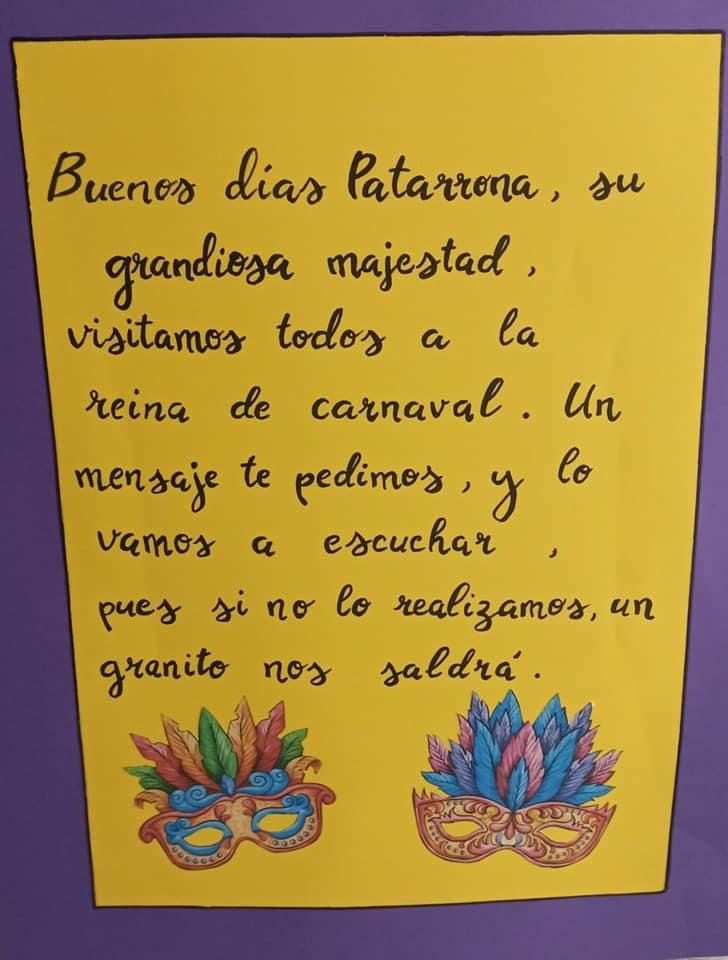 Buenos días Patarrona, su
grandiosa majestad,
visitamos todos a la
reina de carnaval. Un
mensaje te pedimos, y lo
vamos a escuchar,
pues si no lo realizamos, un
granito nos saldrá.